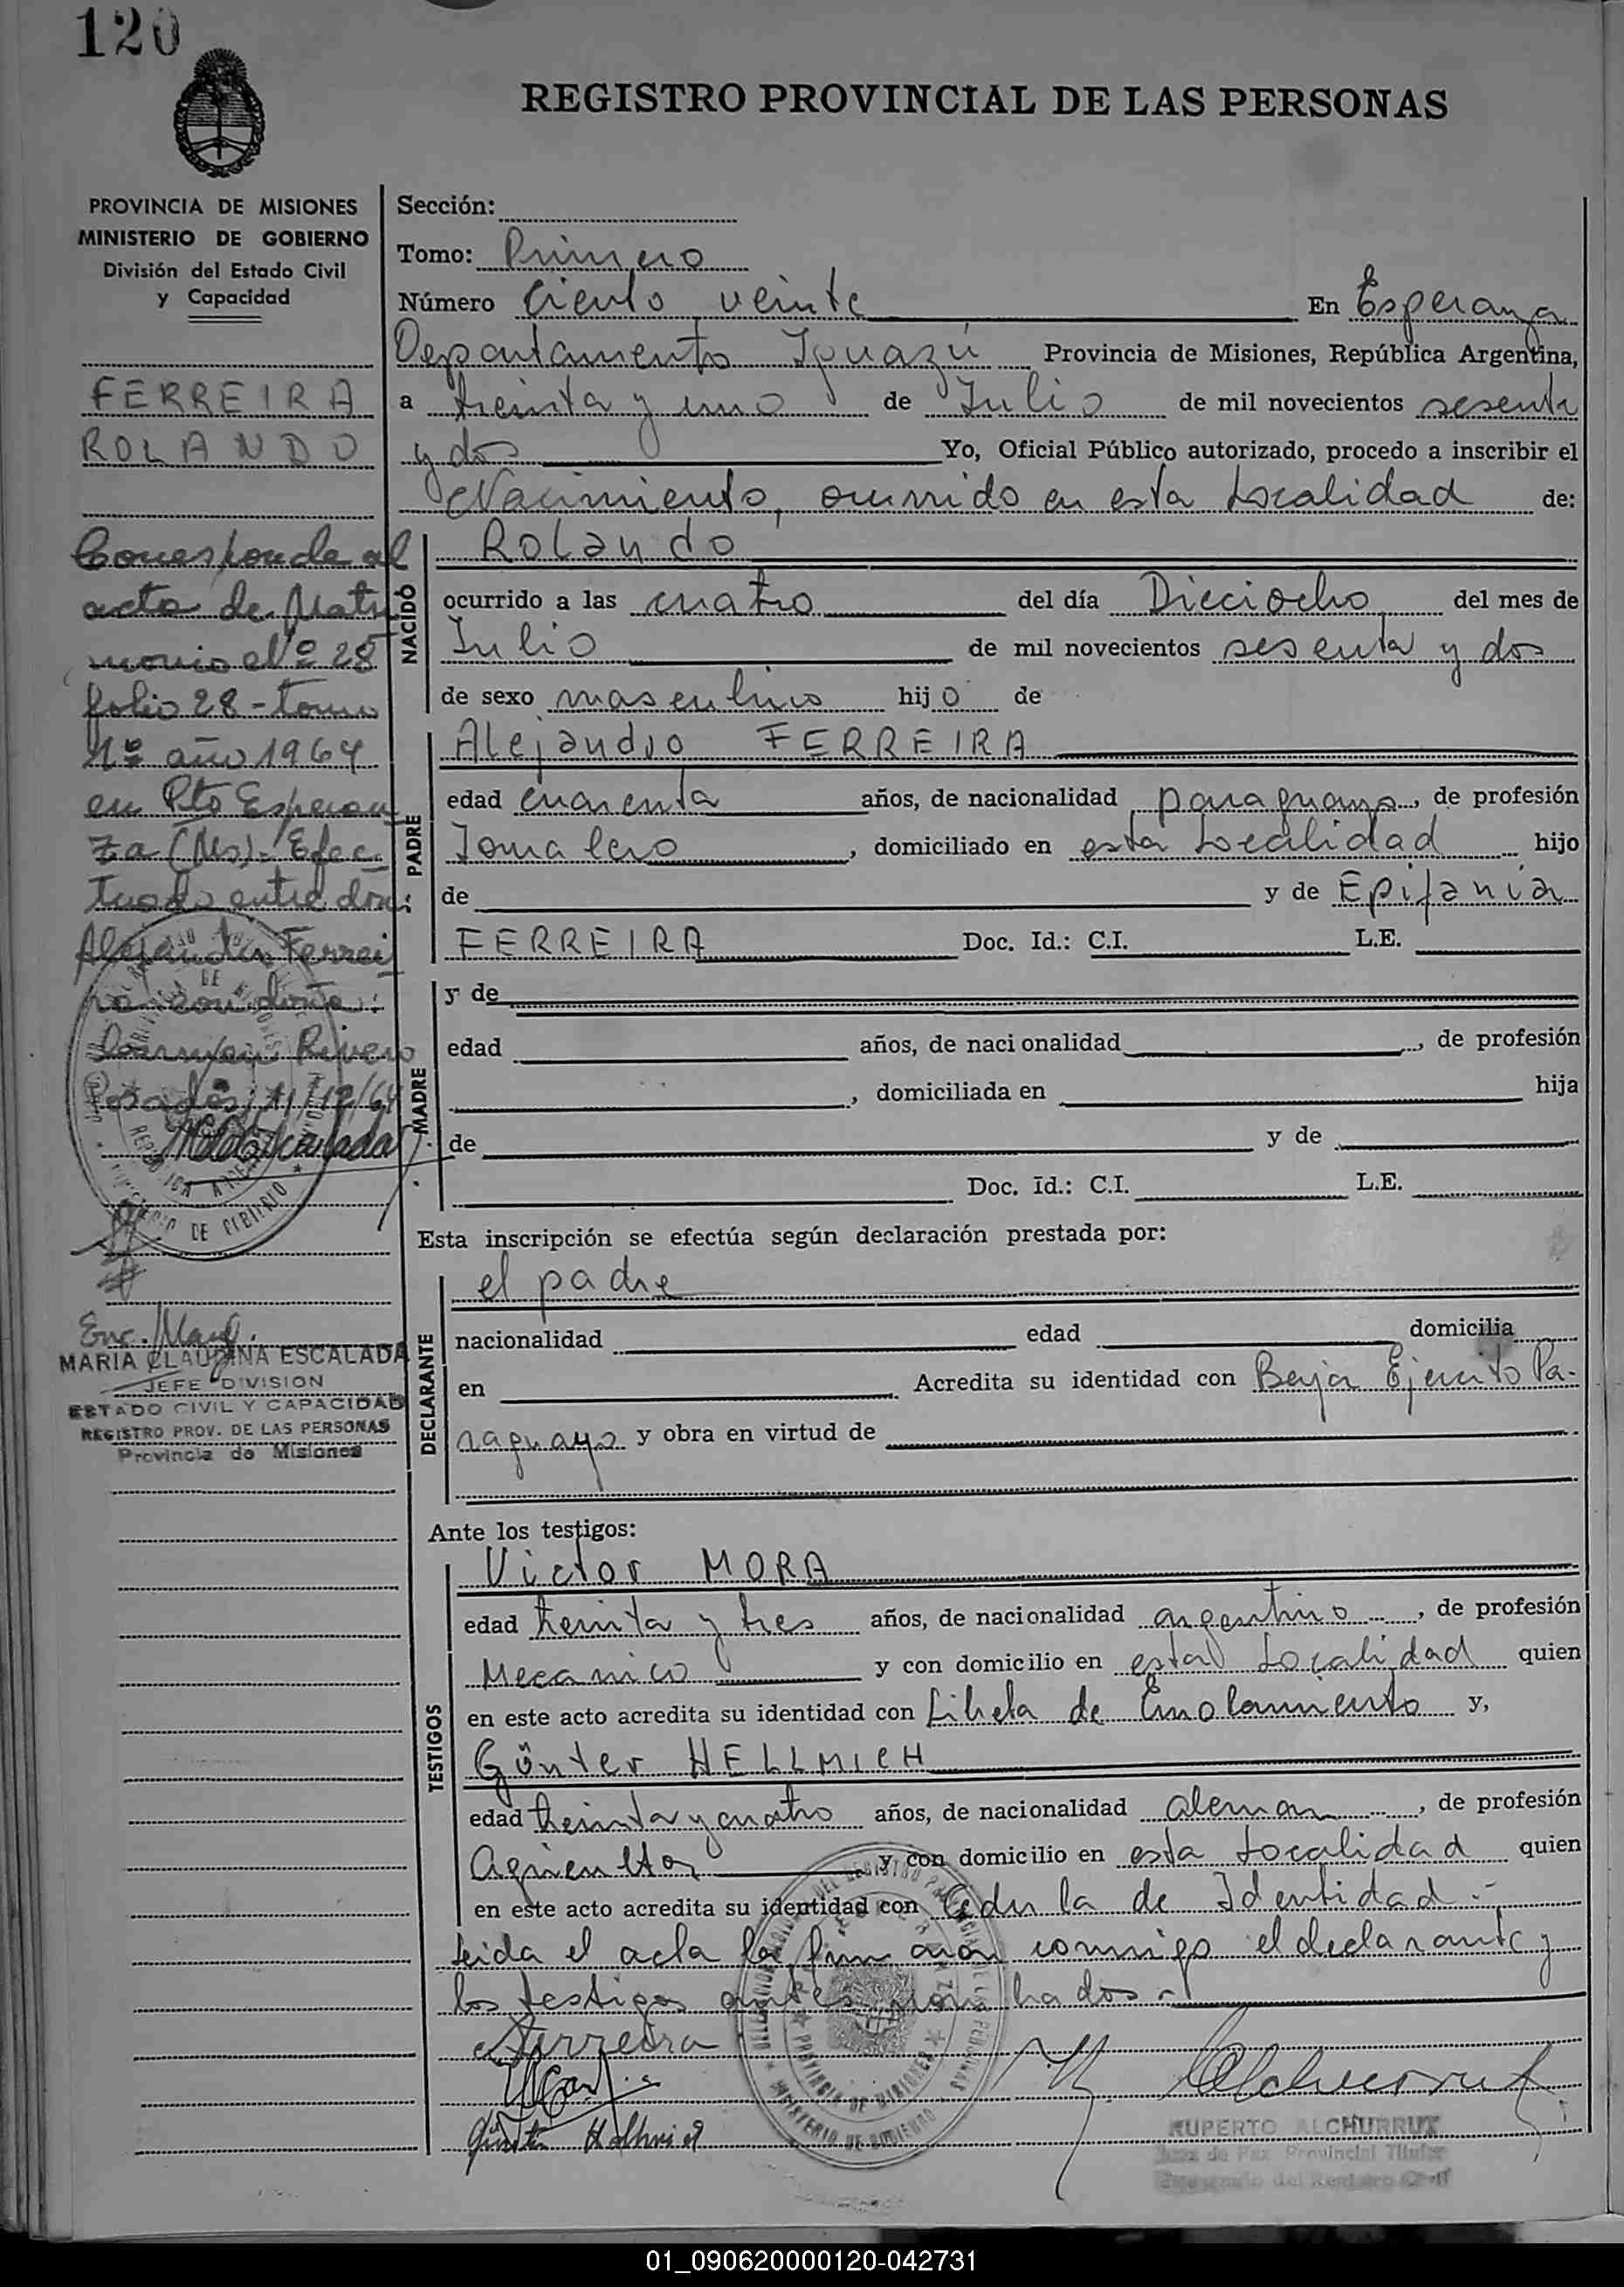 120
REGISTRO PROVINCIAL DE LAS PERSONAS
PROVINCIA DE MISIONES
MINISTERIO DE GOBIERNO
División del Estado Civil
y Capacidad
FERREIRA
ROLANDO
Corresponde al
acta de Matri
monio Nº 28
folio 28 - tomo
1º año 1964
en Pto Esperan
za (Ms) - Efec
tuado entre don:
Alejandro Ferrei
ra con doña:
Carmen Rivero
Posadas, 11/12/64
Enc. Marg.
MARIA CLAUDINA ESCALADA
JEFE DIVISION
ESTADO CIVIL Y CAPACIDAD
REGISTRO PROV. DE LAS PERSONAS
Provincia de Misiones
Sección:
Tomo: Primero
Número Ciento veinte En Esperanza
Departamento Iguazú Provincia de Misiones, República Argentina,
a treinta y uno de Julio de mil novecientos sesenta
y dos Yo, Oficial Público autorizado, procedo a inscribir el
Nacimiento, ocurrido en esta Localidad de:
NACIDO
Rolando
ocurrido a las cuatro del día Dieciocho del mes de
Julio de mil novecientos sesenta y dos
de sexo masculino hijo de
PADRE
Alejandro FERREIRA
edad cuarenta años, de nacionalidad paraguayo, de profesión
Jornalero, domiciliado en esta Localidad hijo
de y de Epifania
FERREIRA Doc. Id.: C.I. L.E.
MADRE
y de
edad años, de nacionalidad, de profesión
, domiciliada en hija
de y de
Doc. Id.: C.I. L.E.
Esta inscripción se efectúa según declaración prestada por:
DECLARANTE
el padre
nacionalidad edad domicilia
en Acredita su identidad con Baja Ejercito Pa-
raguayo y obra en virtud de
Ante los testigos:
TESTIGOS
Victor MORA
edad treinta y tres años, de nacionalidad argentino, de profesión
Mecanico y con domicilio en esta Localidad quien
en este acto acredita su identidad con Libreta de Enrolamiento y,
Günter HELLMICH
edad treinta y cuatro años, de nacionalidad aleman, de profesión
Agricultor y con domicilio en esta Localidad quien
en este acto acredita su identidad con Cedula de Identidad.-
Leida el acta la firmaron conmigo el declarante y
los testigos antes nombrados.-
Ferreira
Günter Hellmich
RUPERTO ALCHURRUT
Juez de Paz Provincial Titular
Encargado del Registro Civil
01_090620000120-042731